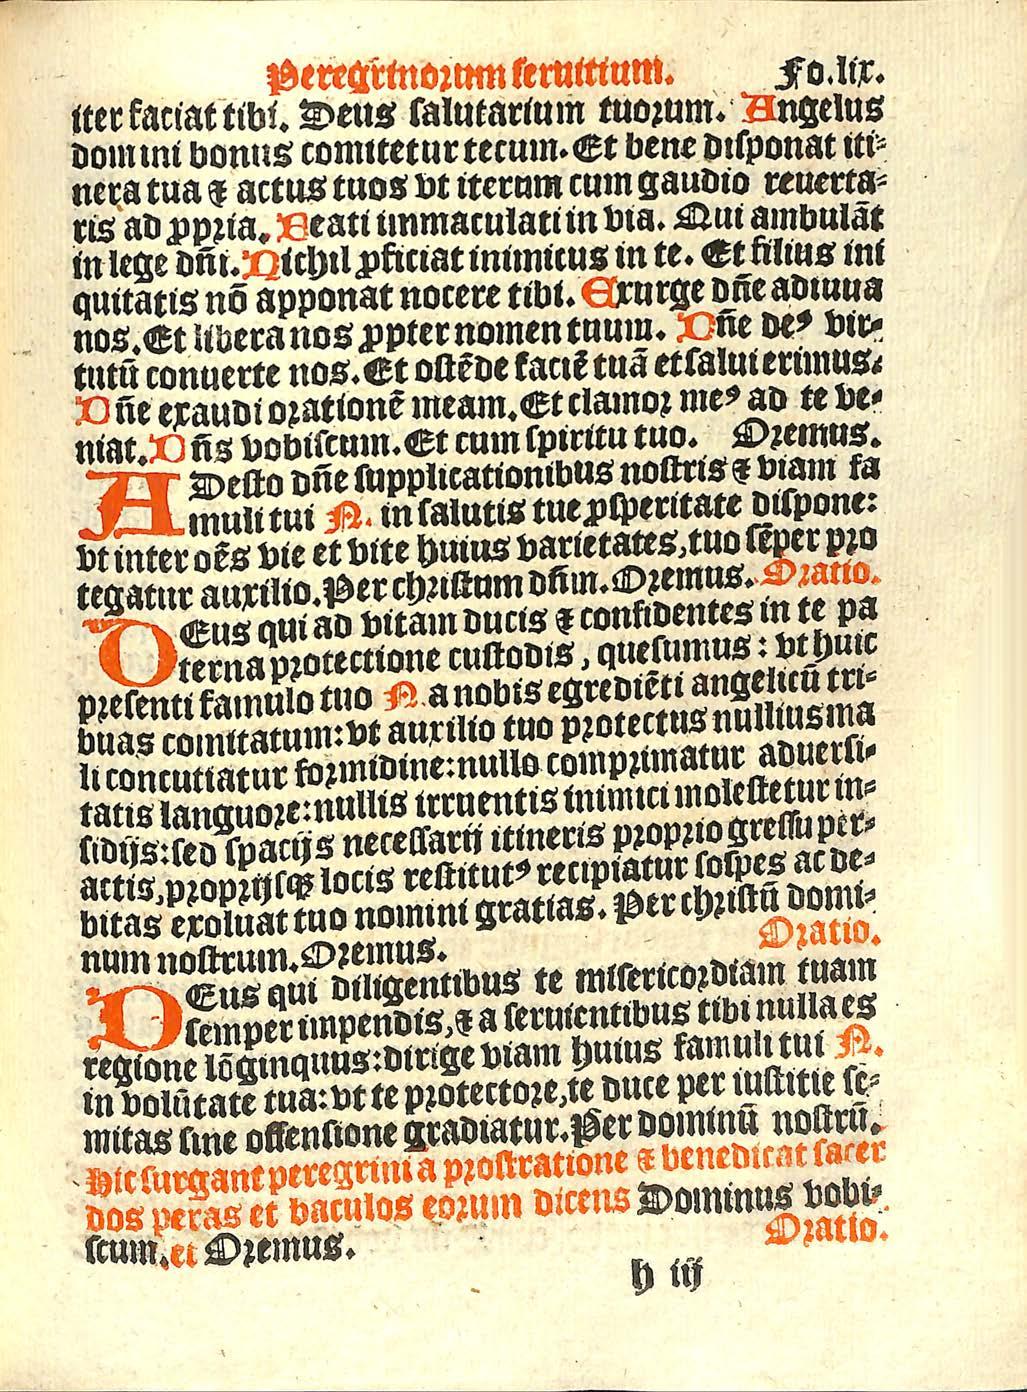 Peregrinorum seruitium. Fo.lix.
iter faciat tibi. Deus salutarium tuorum. Angelus
domini bonus comitetur tecum. Et bene disponat iti-
nera tua & actus tuos vt iterum cum gaudio reuerta-
ris ad ꝓpria. Beati immaculati in via. Qui ambulāt
in lege dñi. Nichil ꝓficiat inimicus in te. Et filius ini
quitatis nō apponat nocere tibi. Exurge dñe adiuua
nos. Et libera nos ꝓpter nomen tuum. Dñe deꝰ vir-
tutū conuerte nos. Et ostēde faciē tuā et salui erimus.
Dñe exaudi orationē meam. Et clamor meꝰ ad te ve-
niat. Dñs vobiscum. Et cum spiritu tuo. Oremus.
ADesto dñe supplicationibus nostris & viam fa
muli tui N. in salutis tue ꝓsperitate dispone:
vt inter oēs vie et vite huius varietates, tuo sēper pro
tegatur auxilio. Per christum dñm. Oremus. Oratio.
DEus qui ad vitam ducis & confidentes in te pa
terna protectione custodis, quesumus: vt huic
presenti famulo tuo N. a nobis egrediēti angelicū tri-
buas comitatum: vt auxilio tuo protectus nullius ma
li concutiatur formidine: nullo comprimatur aduersi-
tatis languore: nullis irruentis inimici molestetur in-
sidijs: sed spacijs necessarij itineris proprio gressu per-
actis, proprijsqꝫ locis restitutꝰ recipiatur sospes ac de-
bitas exoluat tuo nomini gratias. Per christū domi-
num nostrum. Oremus. Oratio.
DEus qui diligentibus te misericordiam tuam
semper impendis, & a seruientibus tibi nulla es
regione lōginquus: dirige viam huius famuli tui N.
in volūtate tua: vt te protectore, te duce per iustitie se-
mitas sine offensione gradiatur. Per dominū nostrū.
Hic surgant peregrini a prostratione & benedicat sacer
dos peras et baculos eorum dicens Dominus vobi-
scum. et Oremus. Oratio.
h iij